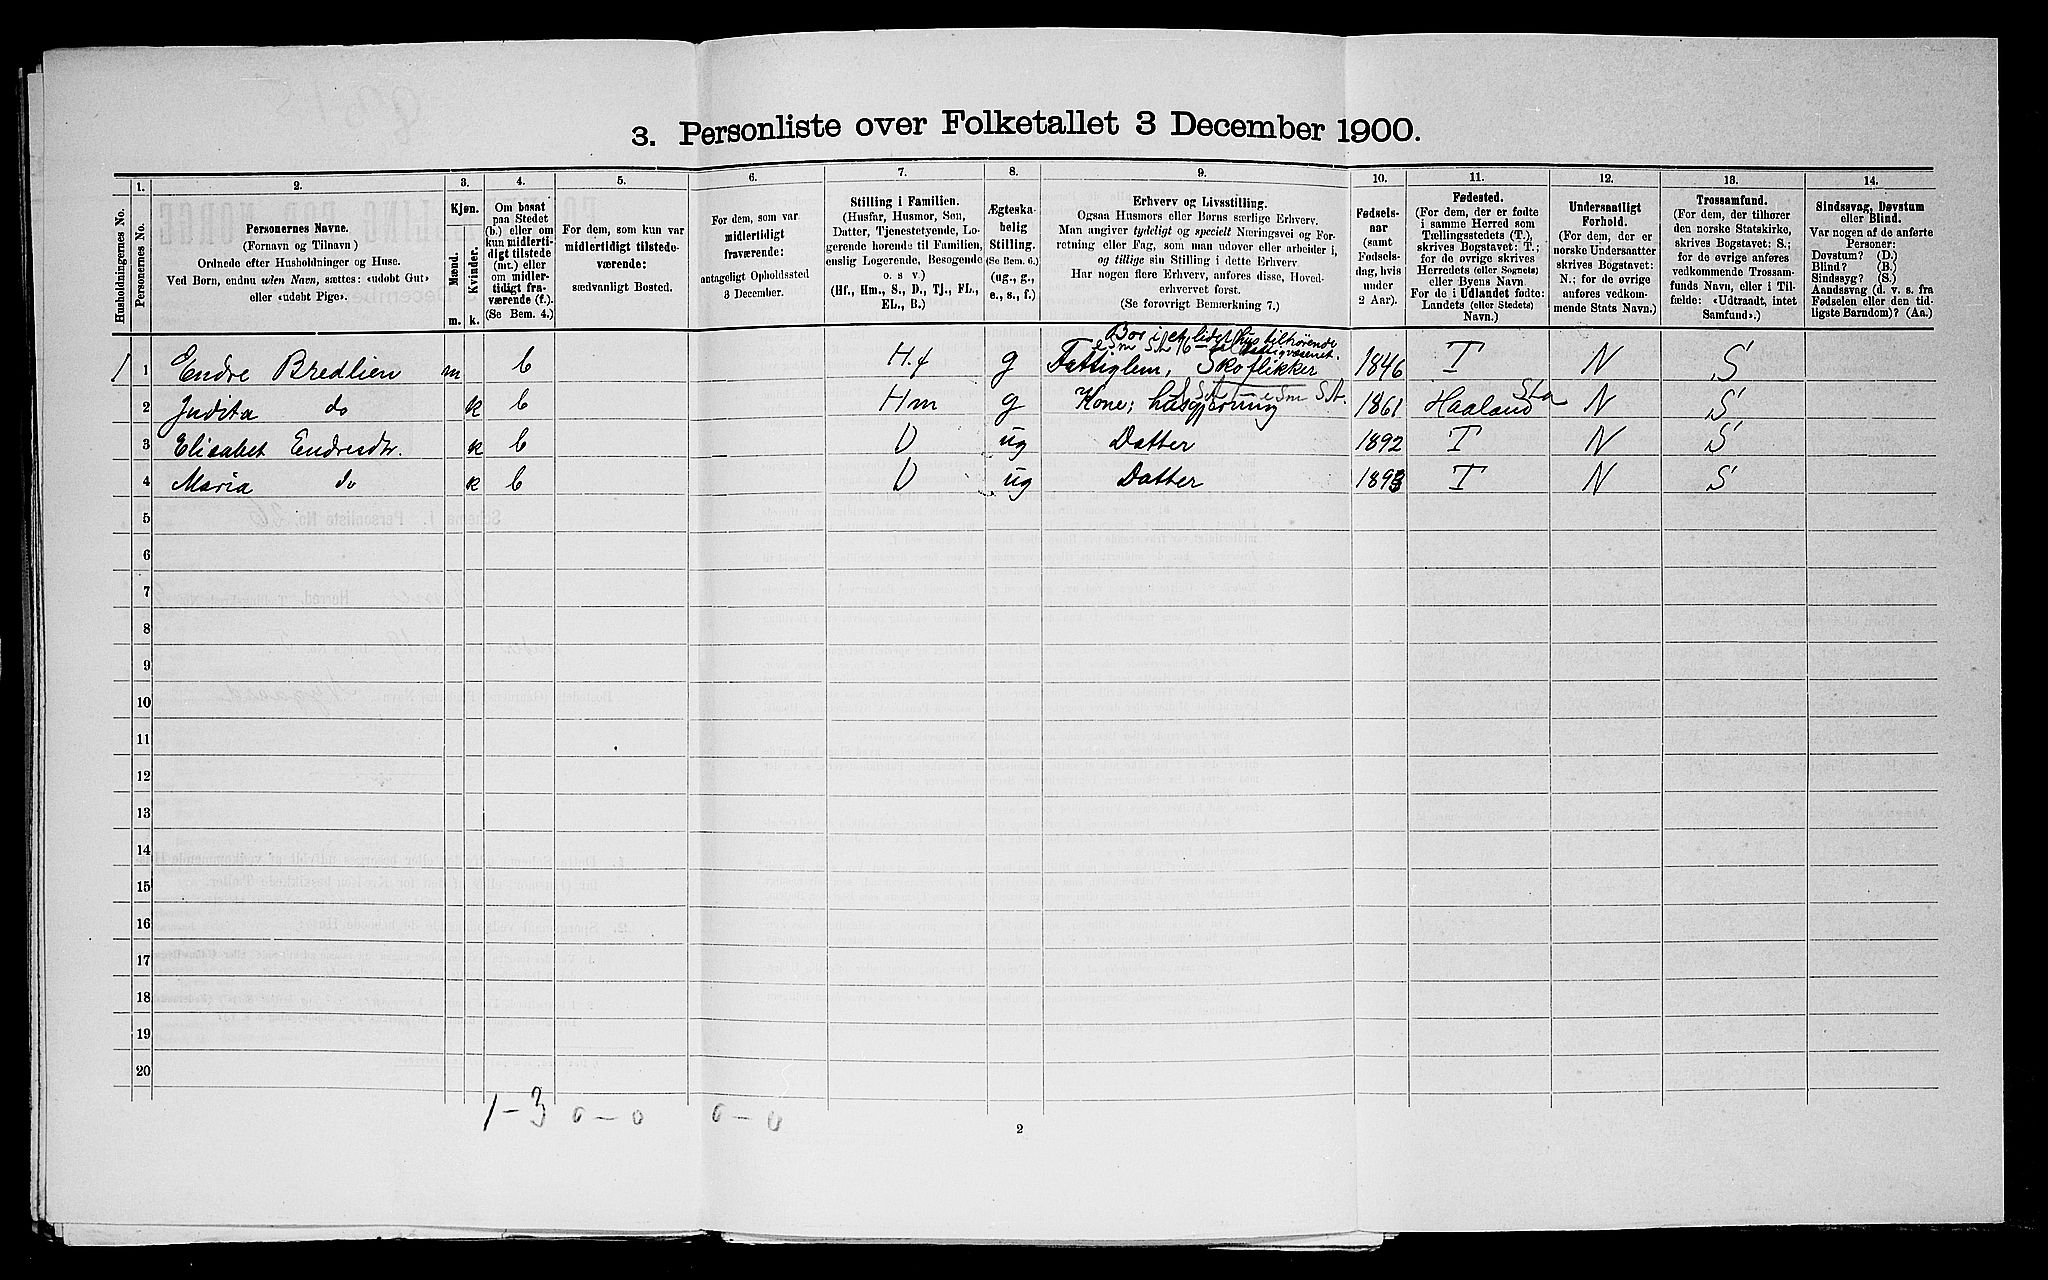 3. Personliste over Folketallet 3 December 1900.
Husholdningernes No.
1.
Personernes No.
2.
Personernes Navne.
(Fornavn og Tilnavn)
Ordnede efter Husholdninger og Huse.
Ved Børn, endnu uden Navn, sættes: «udøbt Gut»
eller «udøbt Pige».
3.
Kjøn.
Mænd.
Kvinder.
m. k.
4.
Om bosat
paa Stedet
(b.) eller om
kun midlerti-
digt tilstede
(mt.) eller
om midler-
tidigt fra-
værende (f.).
(Se Bem. 4.)
5.
For dem, som kun var
midlertidigt tilstede-
værende:
sædvanligt Bosted.
6.
For dem, som var
midlertidigt
fraværende:
antageligt Opholdssted
3 December.
7.
Stilling i Familien.
(Husfar, Husmor, Søn,
Datter, Tjenestetyende, Lo-
gerende hørende til Familien,
enslig Logerende, Besøgende
o. s v.)
(Hf., Hm., S., D., Tj., FL.,
EL., B.)
8.
Ægteska-
belig
Stilling.
(Se Bem. 6.)
(ug., g.,
e., s., f.)
9.
Erhverv og Livsstilling.
Ogsaa Husmors eller Børns særlige Erhverv.
Man angiver tydeligt og specielt Næringsvei og For-
retning eller Fag, som man udøver eller arbeider i,
og tillige sin Stilling i dette Erhverv.
Har nogen flere Erhverv, anføres disse, Hoved-
erhvervet først.
(Se forøvrigt Bemærkning 7.)
10.
Fødsels-
aar
(samt
Fødsels-
dag, hvis
under
2 Aar).
11.
Fødested.
(For dem, der er fødte
i samme Herred som
Tællingsstedets (T.),
skrives Bogstavet: T.;
for de øvrige skrives
Herredets (eller Sognets)
eller Byens Navn.
For de i Udlandet fødte:
Landets (eller Stedets)
Navn.)
12.
Undersaatligt
Forhold.
(For dem, der er
norske Undersaatter
skrives Bogstavet:
N.; for de øvrige
anføres vedkom-
mende Stats Navn.)
13.
Trossamfund.
(For dem, der tilhører
den norske Statskirke,
skrives Bogstavet: S.;
for de øvrige anføres
vedkommende Trossam-
funds Navn, eller i Til-
fælde: «Udtraadt, intet
Samfund».)
14.
Sindssvag, Døvstum
eller Blind.
Var nogen af de anførte
Personer:
Døvstum? (D.)
Blind? (B.)
Sindssyg? (S.)
Aandssvag (d. v. s. fra
Fødselen eller den tid-
ligste Barndom)? (Aa.)
Bor i et lidet hus tilhørende
fattigvæsenet.
1 1 Endre Bredlien m b H.f g Fattiglem, Skoflikker 1846 T N S
2 Judita do k b Hm g Kone; husgjerning 1861 Haaland Sta N S
3 Elisabet Endresdtr. k b D ug Datter 1892 T N S
4 Maria do k b D ug Datter 1893 T N S
5
6
7
8
9
10
11
12
13
14
15
16
17
18
19
20
1 – 3 0 – 0 0 – 0
2